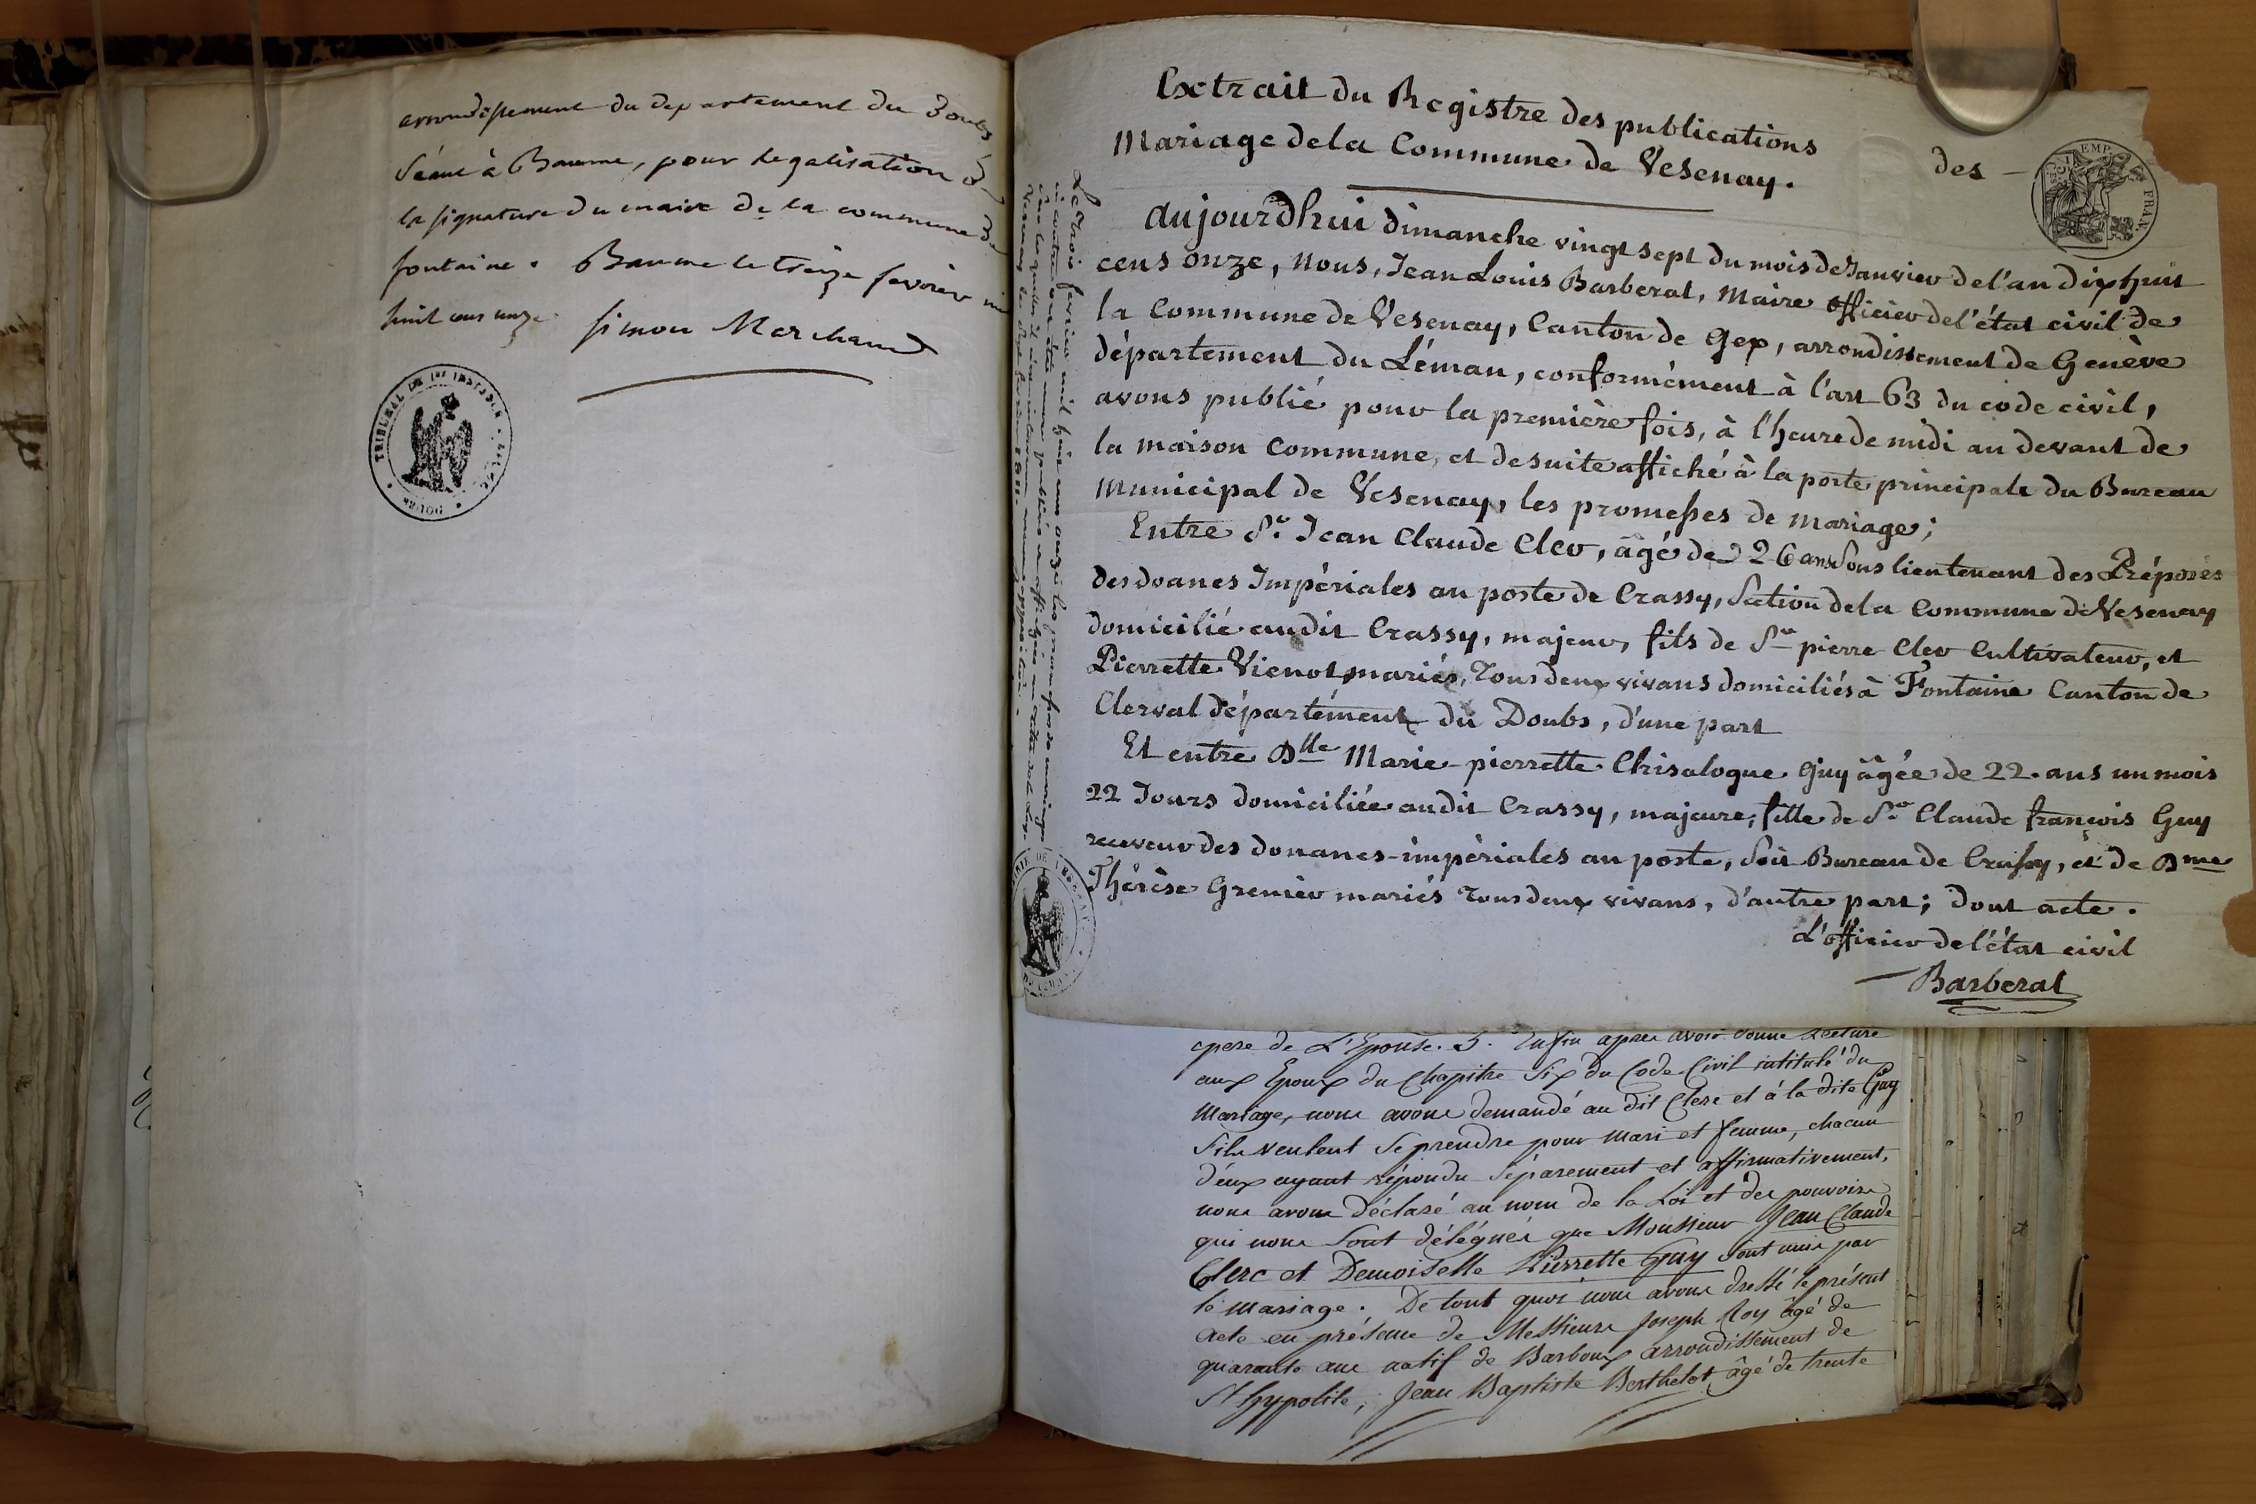 arrondissement du departement du Doubs
Séant à Baume, pour légalisation de
la signature du maire de la commune de
fontaine. Baume le treize fevrier mil
huit cens onze.
Simon Marchand
TRIBUNAL DE 1ere INSTANCE
DOUBS
Extrait du Registre des publications des
Mariage dela Commune de Vesenay.
EMP. FRAN.
Aujourdhui dimanche vingt sept du mois de Janvier de l'an dix huit
cens onze, Nous, Jean Louis Barberat, Maire officier de l'état civil de
la Commune de Vesenay, Canton de Gex, arrondissement de Genève
département du Léman, conformément à l'art 63 du code civil,
avons publié pour la première fois, à l'heure de midi au devant de
la maison commune, et desuite affiché à la porte principale du Bureau
Municipal de Vesenay, les promesses de mariage;
Entre Sr. Jean Claude Clerc, âgé de 26 ans Sous lieutenant des Préposés
des doanes Impériales au poste de Crassy, Section dela Commune de Vesenay
domicilié audit Crassy, majeur, fils de Sr pierre Clerc Cultivateur, et
Pierrette Vienot mariés, Tous deux vivans domiciliés à Fontaine Canton de
Clerval département du Doubs, d'une part
Et entre Dlle Marie-pierrette Chrisalogue Guy âgée de 22. ans un mois
22 Jours domiciliée audit Crassy, majeure, fille de Sr Claude françois Guy
receveur des douanes-impériales au poste, Soit Bureau de Crassy, et de Dme
Thérèse Grenier mariés Tous deux vivans, d'autre part; dont acte.
L'officier de l'état civil
Barberat
Le trois fevrier mil huit cent onze les promesses de mariage
ci contre ont été publiées et affichées
Vesenay le 1811.
opere de L'Epouse. 5. Enfin après avoir donné lecture
aux Epoux du Chapitre Six du Code Civil intitulé du
Mariage, nous avons demandé au dit Clerc et à la dite Guy
S'ils veulent Se prendre pour Mari et femme, chacun
d'eux ayant répondu Séparement et affirmativement,
nous avons Déclaré au nom de la Loi et des pouvoirs
qui nous Sont délégués que Monsieur Jean Claude
Clerc et Demoiselle Pierrette Guy Sont unis par
le mariage. De tout quoi nous avons dressé le présent
Acte en présence de Messieurs Joseph Roy âgé de
quarante ans natif de Barboux arrondissement de
St hyppolite, Jean Baptiste Berthelot, âgé de trente